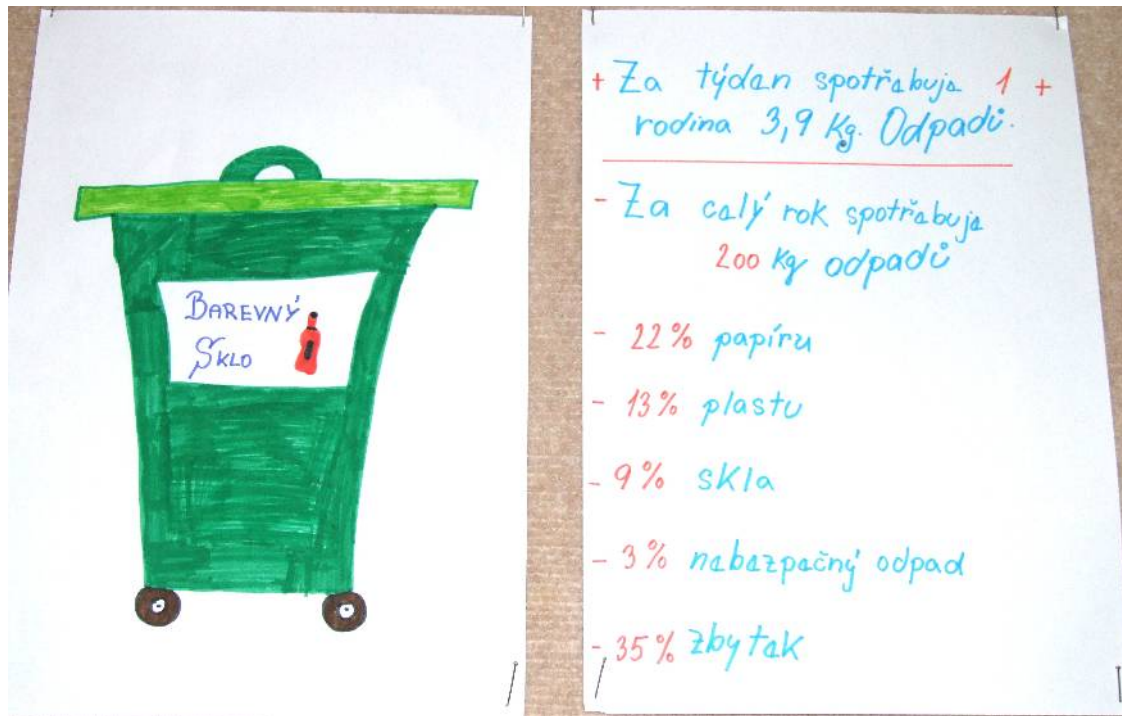 BAREVNÝ
SKLO
+ Za týden spotřebuje 1 +
rodina 3,9 Kg. Odpadů.
- Za celý rok spotřebuje
200 Kg odpadů
- 22% papíru
- 13% plastu
- 9% skla
- 3% nebezpečný odpad
- 35% zbytek